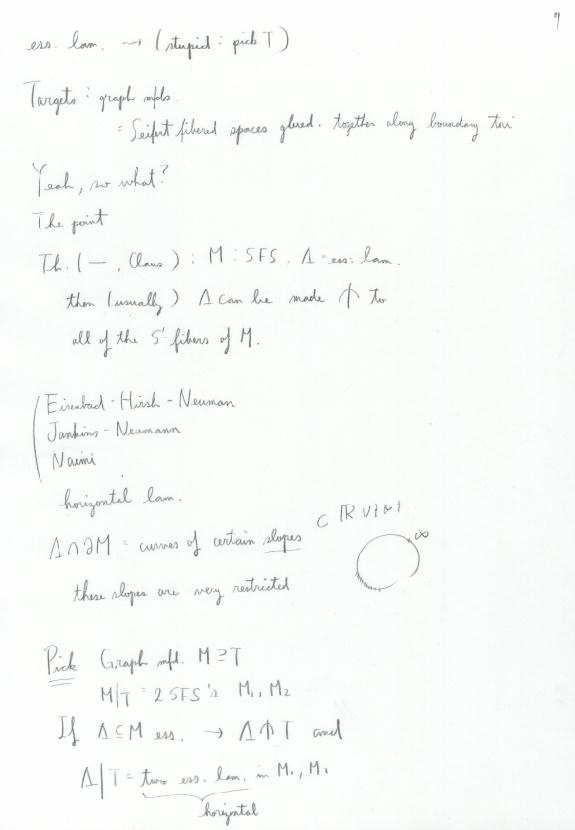 7
ess. lam. ⇝ (stupid : pick T)
Targets : graph mfds.
= Seifert fibered spaces glued. together along boundary tori
Yeah, so what?
The point
Th. ( — , Claus ) : M : SFS. Λ = ess. lam.
then (usually) Λ can be made ⋔ to
all of the S' fibers of M.
Eisenbad - Hirsh - Neuman
Jankins - Neumann
Naimi
horizontal lam.
Λ∩∂M = curves of certain slopes ⊂ ℝ∪{∞}
∞
these slopes are very restricted
Pick Graph mfd. M ⊇ T
M|T = 2 SFS's M₁, M₂
If Λ ⊆ M ess. → Λ ⋔ T and
Λ|T = two ess. lam. in M₁, M₂
horizontal